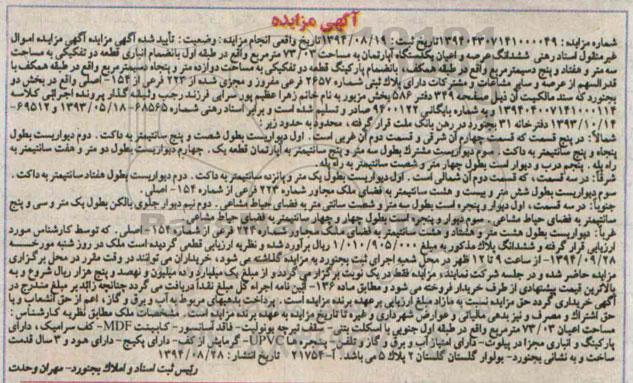 آگهی مزایده
شماره مزایده : ۱۳۹۴۰۴۳۰۷۱۴۱۰۰۰۰۴۹ تاریخ ثبت : ۱۳۹۴/۰۸/۱۹ تاریخ واقعی انجام مزایده : وضعیت : تأیید شده آگهی مزایده آگهی مزایده اموال
غیر منقول اسناد رهنی ششدانگ عرصه و اعیان یکدستگاه آپارتمان به مساحت ۷۳/۰۳ مترمربع واقع در طبقه اول بانضمام انباری قطعه دو تفکیکی به مساحت
سه متر و هفتاد و پنج دسیمترمربع واقع در طبقه همکف و بانضمام پارکینگ قطعه دو تفکیکی به مساحت دوازده متر و پنجاه دسیمترمربع واقع در طبقه همکف با
قدرالسهم از عرصه و سایر مشاعات و مشترکات دارای پلاک ثبتی شماره ۲۶۵۷ فرعی مفروز و مجزی شده از ۲۲۳ فرعی از ۱۵۴- اصلی واقع در بخش دو
بجنورد که سند مالکیت آن ذیل صفحه ۳۴۹ دفتر ۵۸۶ بخش مزبور به نام خانم زهرا عظیم پور سرابی فرزند رجب وثیقه گذار پرونده اجرائی کلاسه
۱۳۹۴۰۴۰۰۷۱۴۱۰۰۰۱۱۴ و به شماره بایگانی ۹۴۰۰۱۲۲ صادر و تسلیم شده است و برابر اسناد رهنی شماره ۶۸۵۶۵-۱۳۹۳/۰۵/۱۸ و ۶۹۵۱۲-
۱۳۹۳/۱۰/۱۳ دفترخانه ۳۱ بجنورد در رهن بانک ملت قرار گرفته ، محدود به حدود زیر :
شمالاً : در پنج قسمت که قسمت چهارم آن شرقی و قسمت دوم آن غربی است . اول دیواریست بطول شصت و پنج سانتیمتر به داکت . دوم دیواریست بطول
پنجاه و پنج سانتیمتر به داکت . سوم دیواریست مشترک بطول سه متر و پنج سانتیمتر به آپارتمان قطعه یک . چهارم دیواریست بطول دو متر و هفت سانتیمتر به
راه پله . پنجم درب و دیوار است بطول چهار متر و شصت سانتیمتر به راه پله .
شرقاً : در سه قسمت ، که قسمت دوم آن شمالی است . اول دیواریست بطول یک متر و پانزده سانتیمتر به داکت . دوم دیواریست بطول هفتاد سانتیمتر به داکت .
سوم دیواریست بطول شش متر و بیست و هشت سانتیمتر به فضای ملک مجاور شماره ۲۲۳ فرعی از شماره ۱۵۴- اصلی .
جنوباً : در سه قسمت ، اول دیوار و پنجره است بطول سه متر و شصت سانتی متر به فضای حیاط مشاعی . دوم نیم دیوار جلوی بالکن بطول یک متر و سی و پنج
سانتیمتر به فضای حیاط مشاعی . سوم دیوار و پنجره است بطول چهار و چهار سانتیمتر به فضای حیاط مشاعی .
غرباً : دیواریست بطول هشت متر و هشتاد و هشت سانتیمتر به فضای ملک مجاور شماره ۲۲۴ فرعی از شماره ۱۵۴- اصلی . که توسط کارشناس مورد
ارزیابی قرار گرفته و ششدانگ پلاک مذکور به مبلغ ۱/۰۱۰/۹۰۵/۰۰۰ ریال برآورد شده و نظریه ارزیابی قطعی گردیده است ملک در روز شنبه مورخه
۱۳۹۴/۰۹/۲۸- از ساعت ۹ تا ۱۲ ظهر در محل شعبه اجرای ثبت بجنورد به مزایده گذاشته می شود ، خریداران می توانند در وقت مقرر در محل برگزاری
مزایده حاضر شده و در جلسه شرکت نمایند، مزایده فقط در یک نوبت برگزار می گردد و از مبلغ یک میلیارد و ده میلیون و نهصد و پنج هزار ریال شروع و به
بالاترین قیمت پیشنهادی از طرف خریدار فروخته می شود و مطابق ماده ۱۳۶- آئین نامه اجراء کل مبلغ نقداً دریافت می گردد چنانچه زائد بر مبلغ مندرج در
آگهی خریداری گردد حق مزایده نسبت به مازاد مبلغ ارزیابی بر عهده برنده مزایده است . پرداخت بدهیهای مربوط به آب و برق و گاز ، اعم از حق انشعاب و یا
حق اشتراک و مصرف و نیز بدهی مالیاتی و عوارض شهرداری و غیره تا تاریخ مزایده به عهده برنده مزایده است . مشخصات ملک مطابق نظریه کارشناس :
مساحت اعیان ۷۳/۰۳ مترمربع واقع در طبقه اول جنوبی با اسکلت بتنی - سقف تیرچه یونولیت - فاقد آسانسور - کابینت MDF- کف سرامیک ، دارای
پارکینگ و انباری مجزا در پیلوت - دارای امتیاز آب و برق و گاز و تلفن - پنجره ها UPVC- گرمایش از کف - دارای پکیج - دارای هود و ۳ سال قدمت
ساخت و به نشانی بجنورد - بولوار گلستان گلستان ۲ پلاک ۵ می باشد. آ-۲۱۷۵۴ تاریخ انتشار : ۱۳۹۴/۰۸/۲۸
رئیس ثبت اسناد و املاک بجنورد - مهران وحدت